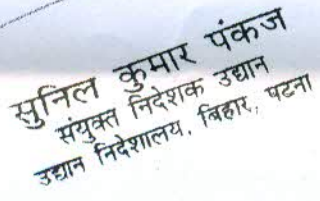 सुनिल कुमार पंकज
संयुक्त निदेशक उद्यान
उद्यान निदेशालय, बिहार, पटना